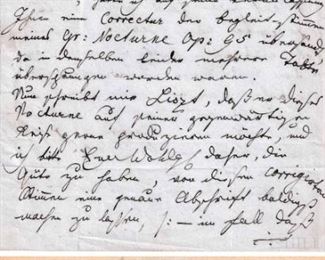 Ihnen eine Correctur der Begleitstimmen
meines Gr: Nocturne Op: 95 übersand,
da in denselben leider mehrere Takte
übersprungen worden waren.
Nun schreibt mir Liszt, daß er dieses
Nocturne auf seiner gegenwärtigen
Reise gerne produziren möchte, und
ich bitte Euer Wohlg daher, die
Güte zu haben, von diesen corrigirten
Stimmen eine genaue Abschrift baldigst
machen zu lassen, /: — im Fall daß